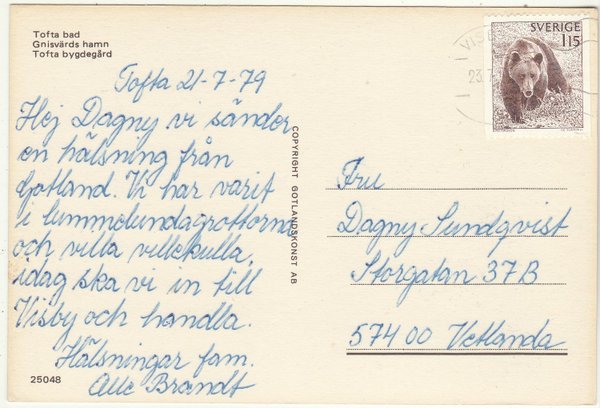 Tofta bad
Gnisvärds hamn
Tofta bygdegård
Tofta 21-7-79
Hej Dagny vi sänder
en hälsning från
Gotland. Vi har varit
i lummelundagrottorna
och villa villekulla,
idag ska vi in till
Visby och handla.
Hälsningar fam.
Brandt
25048
COPYRIGHT GOTLANDSKONST AB
SVERIGE
115
23.7
Fru
Dagny Sundqvist
Storgatan 37B
574 00 Vetlanda